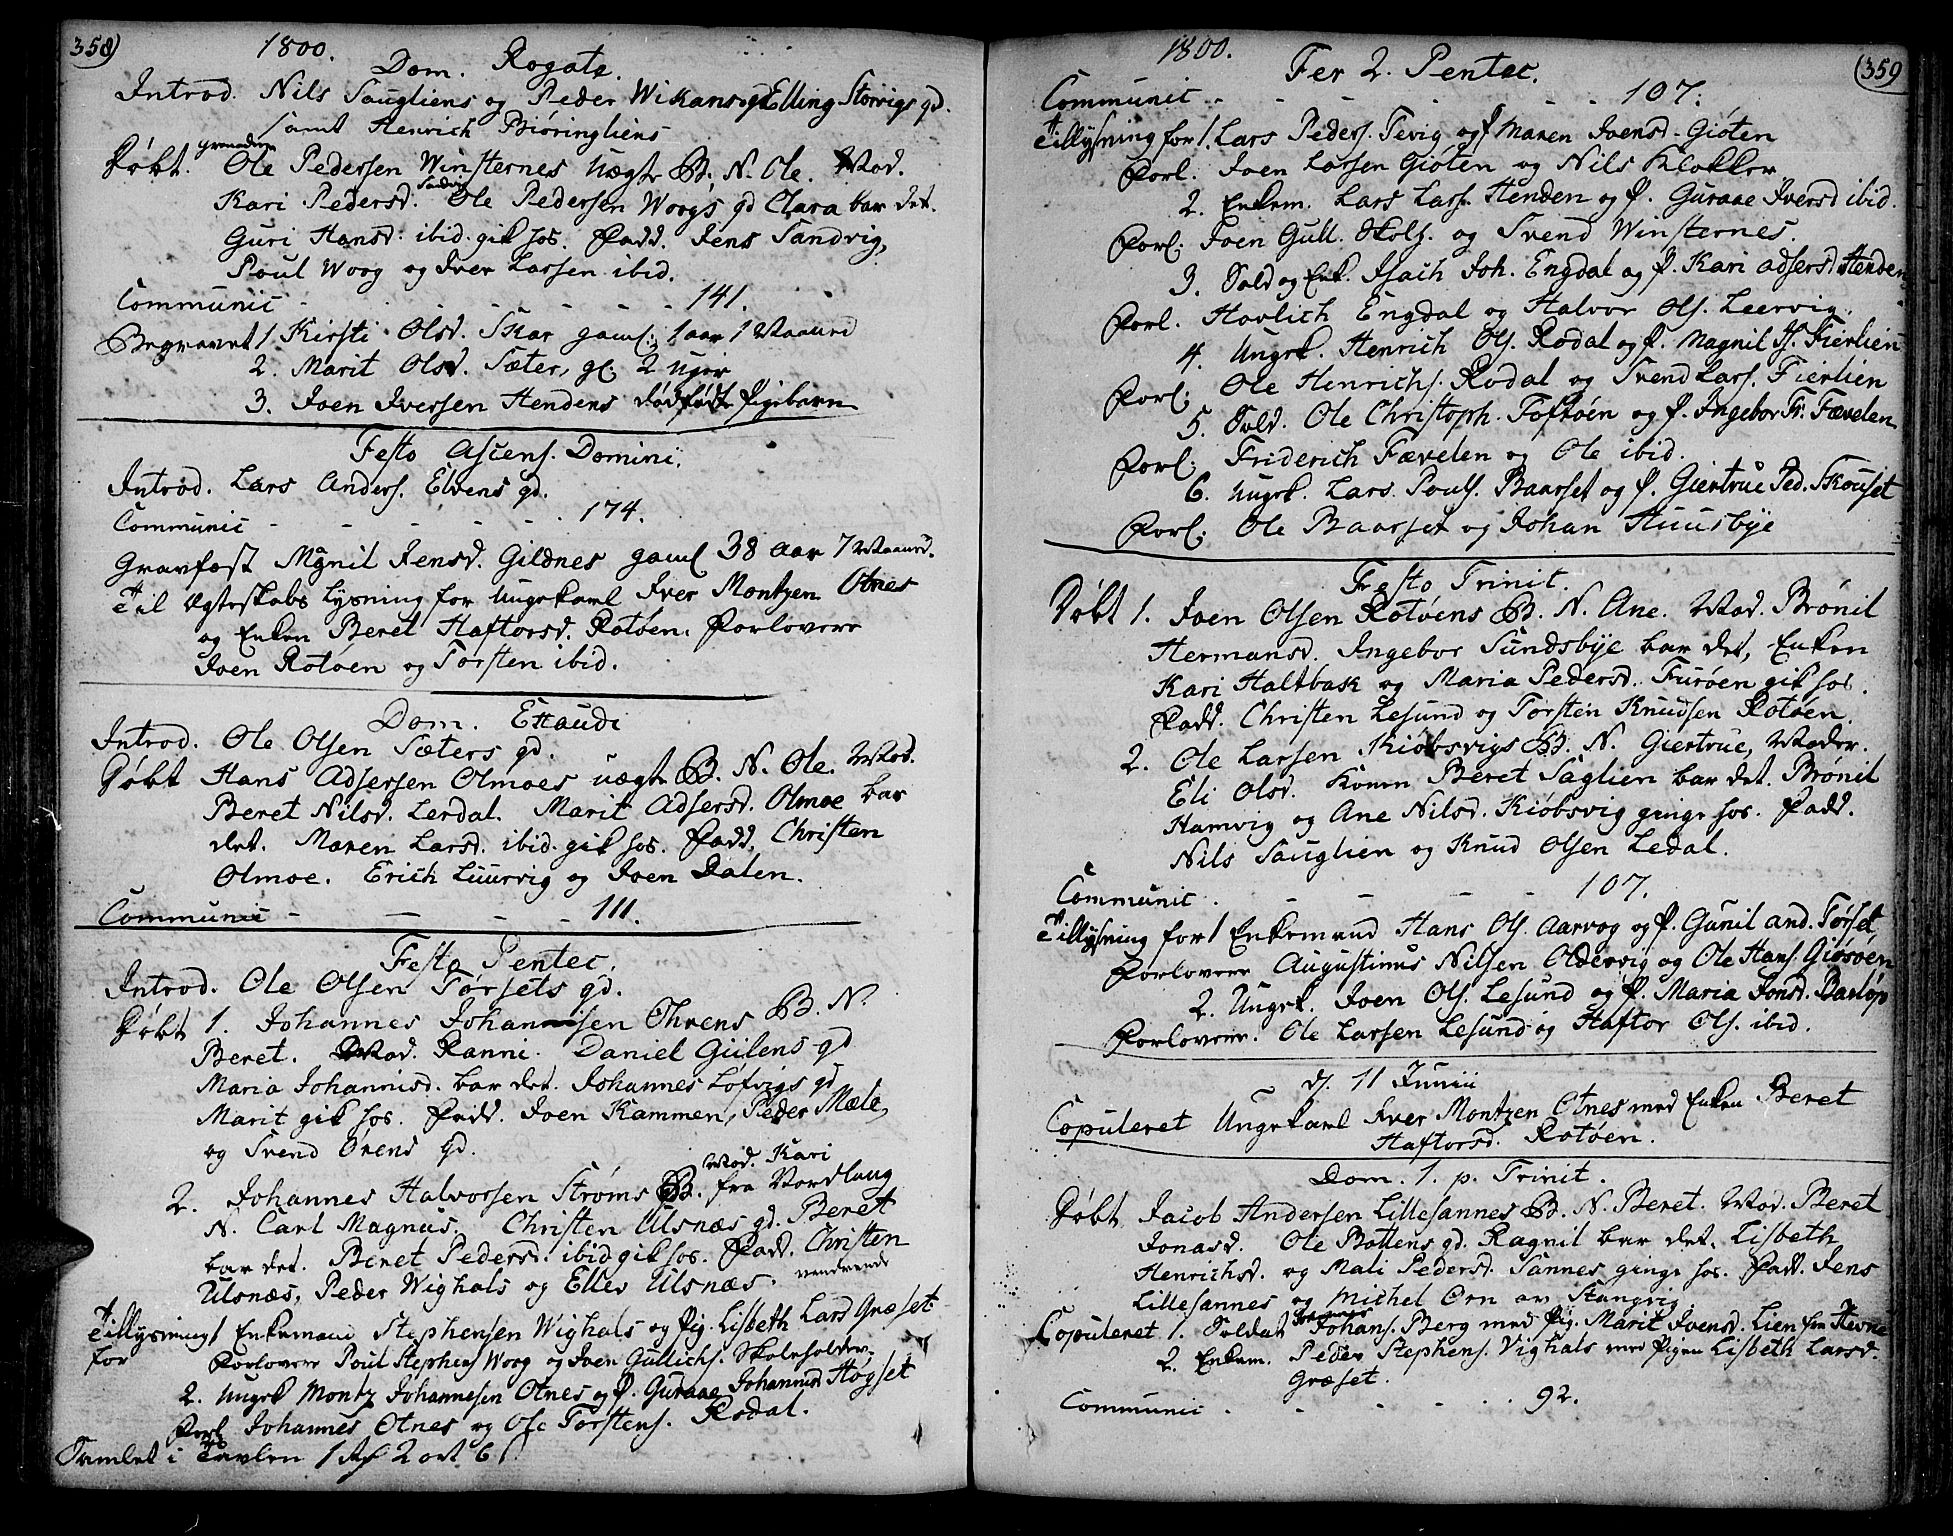 358)
1800.
Dom. Rogate.
Introd. Nils Saugliens og Peder Wikans gd Elling Storvigs gd.
samt Henrich Biøringliens
Døbt. Grenadier Ole Pedersen Winsternes Uægte B. N. Ole. Mod.
Kari Pedersd. Ole Pedersen Woogs gd Clara bar det.
Guri Hansd. ibid. gik hos. Fadd. Jens Sandvig,
Poul Woog og Iver Larsen ibid.
Communic - - - - - - 141.
Begravet 1 Kirsti Olsd. Skar gaml. 1 aar 1 Maaned
2. Marit Olsd. Sæter, gl. 2 Uger
3. Joen Iversen Hendens dødfødt Pigebarn
Festo Ascens. Domini.
Introd. Lars Anders. Elvens gd.
Communic - - - - - - 174.
Gravfæst Magnil Jensd. Gildnes gaml 38 aar 7 Maaned.
Til Ægteskabs Lysning for Ungekarl Iver Montzen Otnes
og Enken Beret Haftorsd. Rotøen. Forlovere
Joen Rotøen og Torsten ibid.
Dom. Exaudi
Introd. Ole Olsen Sæters gd.
Døbt Hans Adsersen Olmoes uægte B. N. Ole. Mod.
Beret Nilsd. Lerdal. Marit Adsersd. Olmoe bar
det. Maren Larsd. ibid. gik hos. Fadd. Christen
Olmoe. Erich Luurvig og Joen Dalen.
Communic - - - - 111.
Festo Pentec.
Introd. Ole Olsen Torsets gd.
Døbt 1. Johannes Johansen Ohrens B. N.
Beret. Mod. Ranni. Daniel Giilens gd
Maria Johannisd. bar det. Johannes Lofvigs gd
Marit gik hos. Fadd. Joen Kammen, Peder Mæle,
og Svend Orens gd.
Mod. Kari
2. Johannes Halvorsen Strøms B. fra Nordlaug
N. Carl Magnus. Christen Ulsnæs gd. Beret
bar det. Beret Pedersd. ibid gik hos. Fadd. Christen
Ulsnæs, Peder Wighals og Ellev Ulsnæs.
Tillysning 1 Enkemand Stephensen Wighals og Pig. Lisbeth Larsd Græset
for Forlovere Poul Stephens Woog og Joen Gullichs. Skoleholder.
2. Ungek Montz Johannesen Otnes og P. Guraae Johannisd Høgset
Forl. Johannes Otnes og Ole Torstens. Rodal.
Samlet i Tavlen 1 Rd 2 ort 6 s
1800.
(359
Fer 2. Pentec.
Communic - - - - - - 107.
Tillysning for 1. Lars Peders. Tevig og P Maren Joensd. Giøten
Forl. Joen Larsen Giøten og Nils Klokker.
2. Enkem. Lars Lars. Henden og P. Guraae Iversd ibid.
Forl. Joen Gull. Skolh. og Svend Winsternes.
3. Sold og Enk. Isach Joh. Engdal og P. Kari Adsersd. Henden
Forl. Havlich Engdal og Halvor Ols. Leervig.
4. Ungek. Henrich Ols. Rodal og P. Magnil S. Fierlien
Forl. Ole Henrichs. Rodal og Svend Lars. Fierlien
5. Sold. Ole Christoph. Toftøen og P. Ingebor Fr. Fævelen
Forl. Friderich Fævelen og Ole ibid.
6. Ungek. Lars Pouls. Baarset og P. Giertrue Ped. Skouset
Forl. Ole Baarset og Johan Huusbye
Festo Trinit.
Døbt 1. Joen Olsen Rotøens B. N. Ane. Mod. Brønil
Hermansd. Ingebor Sundsbye bar det, Enken
Kari Haltbak og Maria Pedersd. Furøen gik hos.
Fadd. Christen Lesund og Torsten Knudsen Rotøen.
2. Ole Larsen Kiøbsvigs B. N. Giertrue, Moder.
Eli Olsd. Konen Beret Saglien bar det. Brønil
Hamvig og Ane Nilsd. Kiøbsvig ginge hos. Fadd.
Nils Sauglien og Knud Olsen Ledal.
Communic. - - - - - 107.
Tillysning for 1 Enkemand Hans Ols. Aarvog og P. Gunil And. Torset
Forlovere Augustinus Nilsen Oldervig og Ole Hans. Giøsøen
2. Ungek. Joen Ols. Lesund og P. Maria Jonsd. Barløp
Forlovere. Ole Larsen Lesund og Haftor Ols. ibid.
d. 11 Junii
Copuleret Ungekarl Iver Montzen Otnes med Enken Beret
Haftorsd. Rotøen.
Dom. 1. p. Trinit.
Døbt Jacob Andersen Lillesannes B. N. Beret. Mod. Beret
Jonasd. Ole Bottens gd. Ragnil bar det. Lisbeth
Henrichsd. og Mali Pedersd. Sannes ginge hos. Fadd. Jens
Lillesannes og Michel Ørn av Stangvig
Copuleret 1. Soldat Johans. Berg med Pig. Marit Joensd. Lien fra Hevne
2. Enkem. Peder Stephens. Vighals med Pigen Lisbeth Larsd.
Græset.
Communic . - - - - . 92.